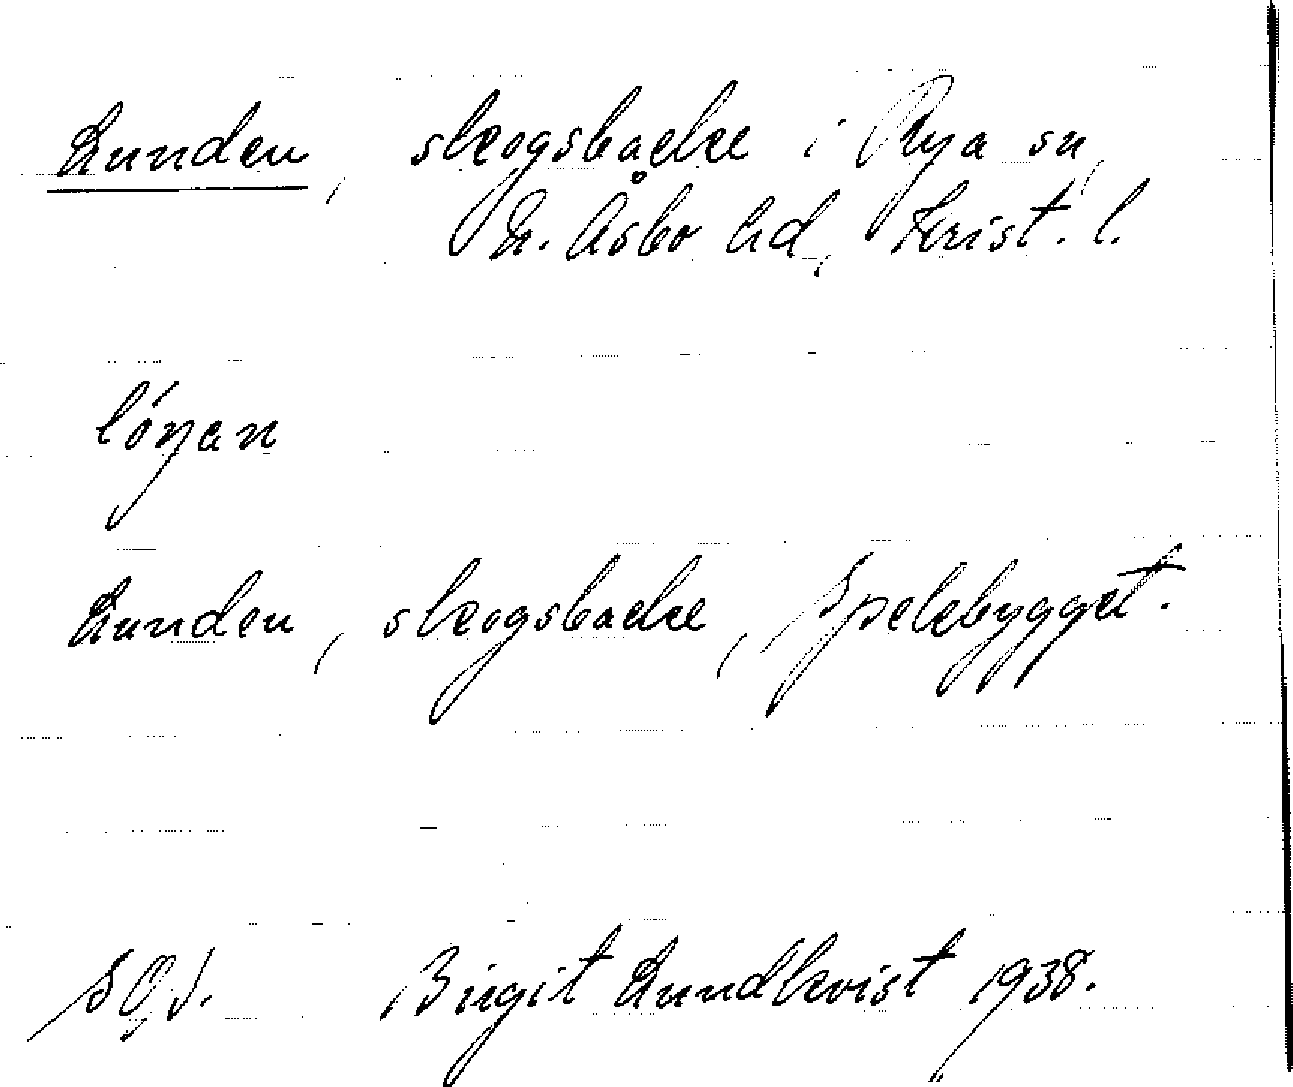 Lunden, skogsbacke i Rya sn,
N. Åsbo hd, Krist. l.
lóŋan
Lunden, skogsbacke, Spekebygget.
Birgit Lundkvist 1938.